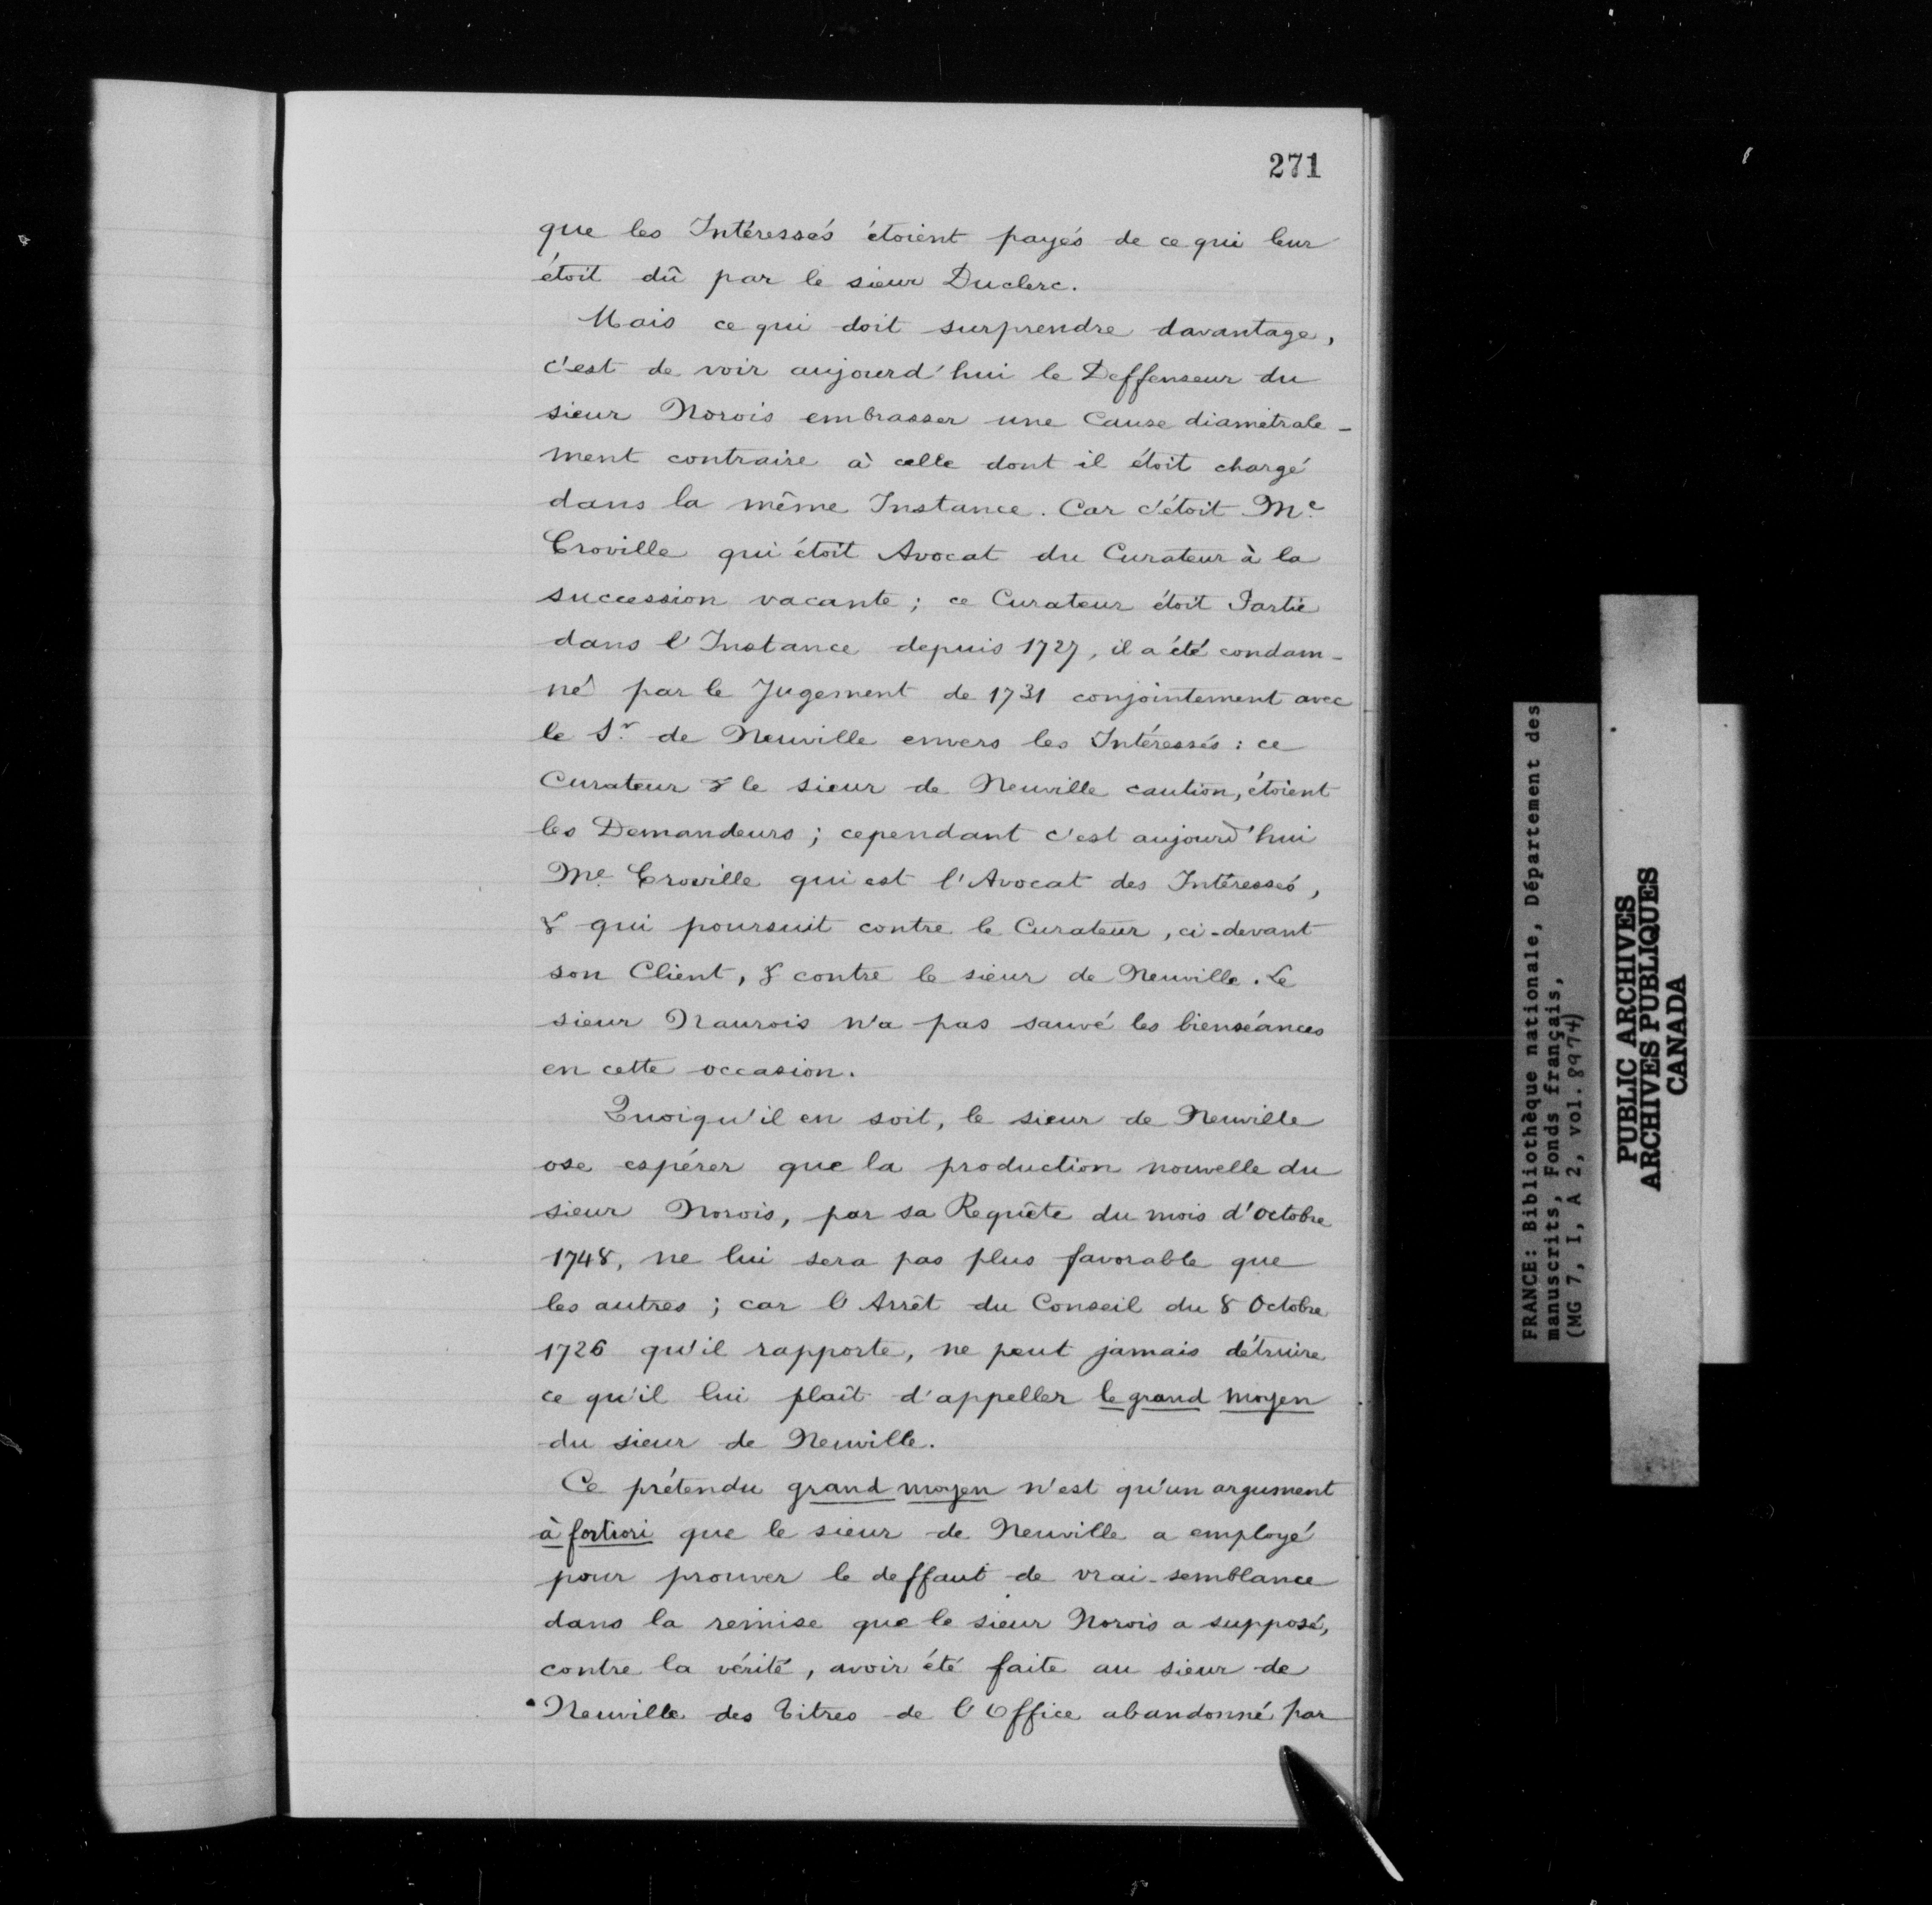 271
que les Intéressés étoient payés de ce qui leur
étoit dû par le sieur Duclerc.
Mais ce qui doit surprendre davantage,
c'est de voir aujourd'hui le Deffenseur du
sieur Norois embrasser une Cause diamétrale-
ment contraire à celle dont il étoit chargé
dans la même Instance. Car c'étoit Me.
Croville qui étoit Avocat du Curateur à la
succession vacante; ce Curateur étoit Partie
dans l'Instance depuis 1727, il a été condam-
né par le Jugement de 1731 conjointement avec
le Sr. de Neuville envers les Intéressés: ce
Curateur & le sieur de Neuville caution, étoient
les Demandeurs; cependant c'est aujourd'hui
Me. Croville qui est l'Avocat des Intéressés,
& qui poursuit contre le Curateur, ci-devant
son Client, & contre le sieur de Neuville. Le
sieur Naurois n'a pas sauvé les bienséances
en cette occasion.
Quoiqu'il en soit, le sieur de Neuville
ose espérer que la production nouvelle du
sieur Norois, par sa Requête du mois d'Octobre
1748, ne lui sera pas plus favorable que
les autres; car l'Arrêt du Conseil du 8 Octobre
1726 qu'il rapporte, ne peut jamais détruire
ce qu'il lui plaît d'appeller le grand moyen
du sieur de Neuville.
Ce prétendu grand moyen n'est qu'un argument
à fortiori que le sieur de Neuville a employé
pour prouver le deffaut de vrai-semblance
dans la remise que le sieur Norois a supposé,
contre la vérité, avoir été faite au sieur de
Neuville des Titres de l'Office abandonné par
FRANCE: Bibliothèque nationale, Département des
manuscrits, Fonds français,
(MG 7, I, A 2, vol. 8974)
PUBLIC ARCHIVES
ARCHIVES PUBLIQUES
CANADA